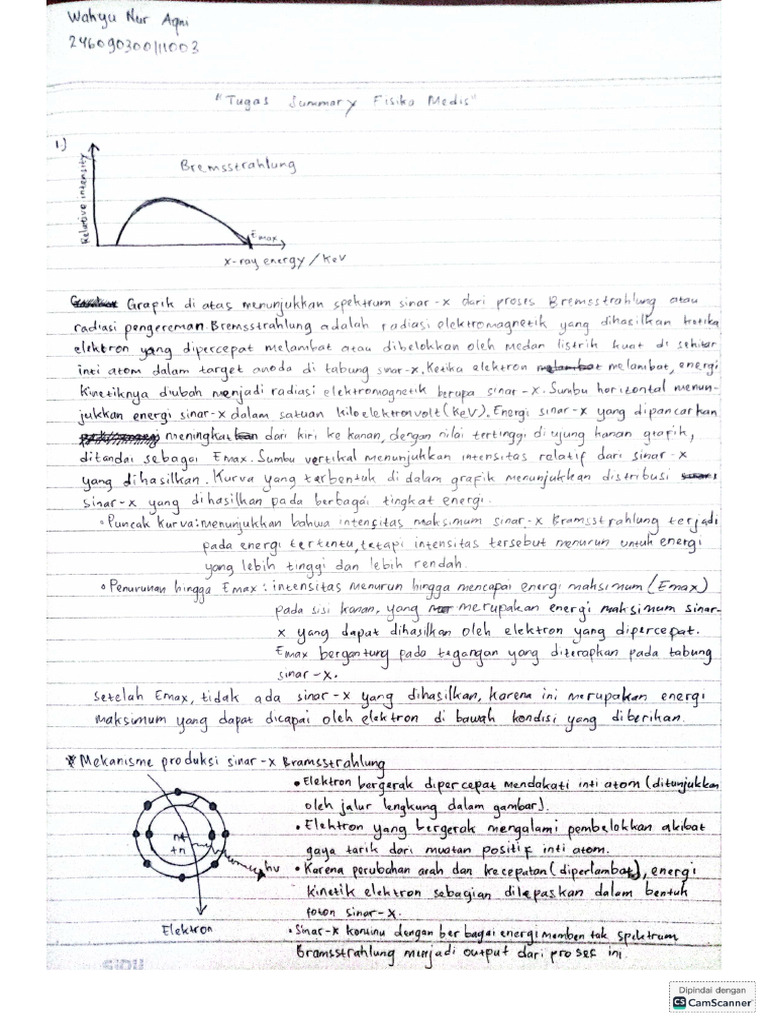 Wahyu Nur Aqni
246090300111003
"Tugas Summary Fisika Medis"
1.)
Relative intensity
Bremsstrahlung
Emax
x-ray energy / KeV
Grapik di atas menunjukkan spektrum sinar-x dari proses Bremsstrahlung atau
radiasi pengereman. Bremsstrahlung adalah radiasi elektromagnetik yang dihasilkan ketika
elektron yang dipercepat melambat atau dibelokkan oleh medan listrik kuat di sekitar
inti atom dalam target anoda di tabung sinar-x. Ketika elektron melambat, energi
kinetiknya diubah menjadi radiasi elektromagnetik berupa sinar-x. Sumbu horizontal menun-
jukkan energi sinar-x dalam satuan kiloelektronvolt (KeV). Energi sinar-x yang dipancarkan
meningkat dari kiri ke kanan, dengan nilai tertinggi di ujung kanan grafik,
ditandai sebagai Emax. Sumbu vertikal menunjukkan intensitas relatif dari sinar-x
yang dihasilkan. Kurva yang terbentuk di dalam grafik menunjukkan distribusi
sinar-x yang dihasilkan pada berbagai tingkat energi.
• Puncak kurva: menunjukkan bahwa intensitas maksimum sinar-x Bramsstrahlung terjadi
pada energi tertentu, tetapi intensitas tersebut menurun untuk energi
yang lebih tinggi dan lebih rendah.
• Penurunan hingga Emax: intensitas menurun hingga mencapai energi maksimum (Emax)
pada sisi kanan, yang merupakan energi maksimum sinar-
x yang dapat dihasilkan oleh elektron yang dipercepat.
Emax bergantung pada tegangan yang diterapkan pada tabung
sinar-x.
Setelah Emax, tidak ada sinar-x yang dihasilkan, karena ini merupakan energi
maksimum yang dapat dicapai oleh elektron di bawah kondisi yang diberikan.
* Mekanisme produksi sinar-x Bramsstrahlung
n+
+n
hv
Elektron
• Elektron bergerak dipercepat mendekati inti atom (ditunjukkan
oleh jalur lengkung dalam gambar).
• Elektron yang bergerak mengalami pembelokkan akibat
gaya tarik dari muatan positif inti atom.
• Karena perubahan arah dan kecepatan (diperlambat), energi
kinetik elektron sebagian dilepaskan dalam bentuk
foton sinar-x.
• Sinar-x kontinu dengan berbagai energi membentuk spektrum
Bramsstrahlung menjadi output dari proses ini.
SIDU
Dipindai dengan
CS CamScanner